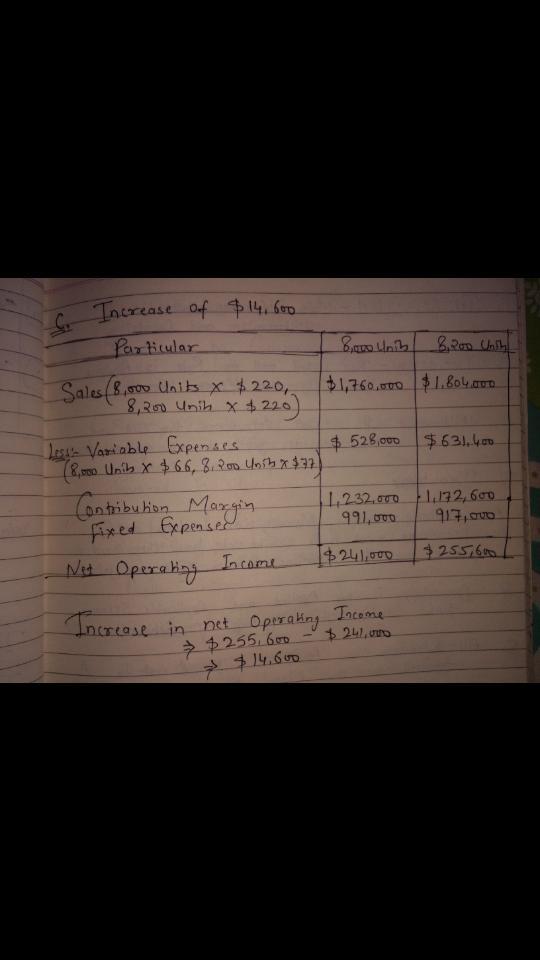 C. Increase of $14,600
Particular 8,000 Units 8,200 Units
Sales (8,000 Units X $220, $1,760,000 $1,804,000
8,200 Units X $220)
Less:- Variable Expenses $528,000 $631,400
(8,000 Units X $66, 8,200 Units X $77)
Contribution Margin 1,232,000 1,172,600
Fixed Expenses 991,000 917,000
Net Operating Income $241,000 $255,600
Increase in net Operating Income
⇒ $255,600 - $241,000
⇒ $14,600